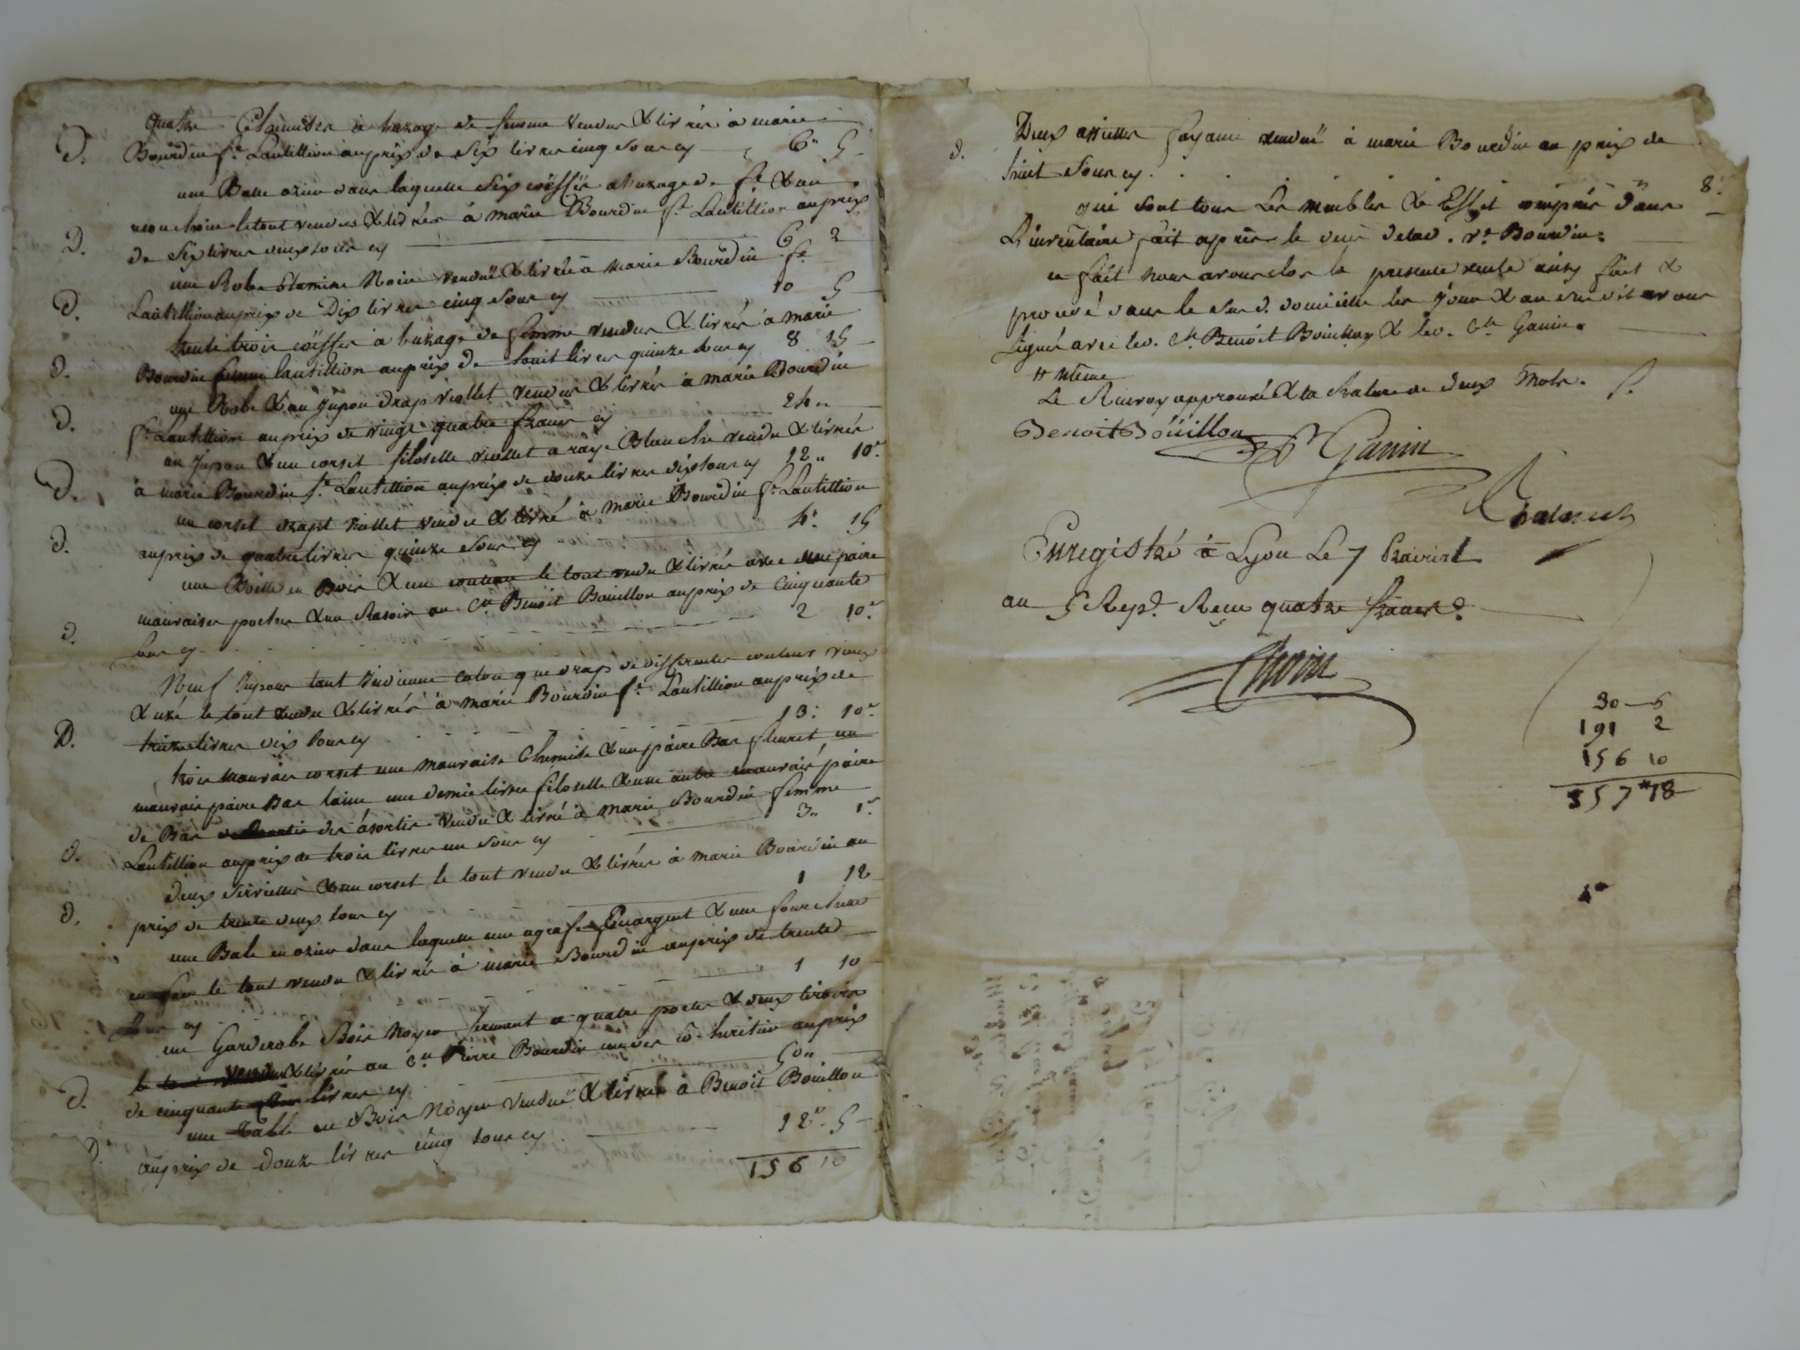 quatre Chemises a husage de femme vendus & livrés à marie
D. Bourdin fe Lantillion au prix de Six livres cinq Sous cy 6" 5
une Balle ozier dans laquelle Six coiffes a husage de fe & un
mouchoir le tout vendus & livrés à marie Bourdin fe Lantillion au prix
D. de Six livres deux sous cy 6 2
une Robe Etamine Noire vendue & livrée à Marie Bourdin fe
D. Lantillion au prix de Dix livres cinq Sous cy 10 5
trente trois coiffes à husage de femme vendus & livrés à marie
D. Bourdin femme lantillion au prix de huit livres quinze sous cy 8 15
une Robe & un Jupon drap viollet vendus & livrés à marie Bourdin
D. fe Lantillion au prix de vingt quatre francs cy 24 "
un Jupon & un corset filoselle viollet a raye Blanche vendu & livrés
D. à marie Bourdin fe Lantillion au prix de douze livres dix sous cy 12 " 10
un corset drapt viollet vendu & livré à marie Bourdin fe Lantillion
D. au prix de quatre livres quinze Sous cy 4 15
une Boitte en Bois & un couteau le tout vendu & livré avec une paire
mauvaises poches & un Rasoir au Cn Benoit Bouillon au prix de Cinquante
D. sous cy 2 10
Neuf Jupons tant Indienne coton que drap de differentes couleurs vieux
& uzé le tout vendu & livrés à marie Bourdin fe Lantillion au prix de
D. treize livres dix sous cy 13 10
trois mauvais corset une mauvaise Chemise & un paire Bas fleuret un
mauvais paire Bas laine une demie livre filoselle & une autre mauvais paire
de Bas des asortis vendu & livré à marie Bourdin femme
D. Lantillion au prix de trois livres un Sous cy 3 " 1
deux serviettes & un corset le tout vendu & livrés à marie Bourdin au
D. prix de trente deux sous cy 1 12
une Bale en ozier dans laquelle une agrafe En argent & une fourchue
en fer le tout vendu & livrés à marie Bourdin au prix de trente
sous cy 1 10
une Garderobe Bois Noyer fermant a quatre portes & deux tiroirs
le tout vendu & livrés au Cn Pierre Bourdin au prix
D. de cinquante livres cy 50 "
une Table en Bois Noyer vendue & livrée à Benoit Bouillon
D. au prix de douze livres cinq sous cy 12 " 5
156 10
D. Deux assiettes fayance vendue à marie Bourdin au prix de
huit Sous cy. 8
qui sont tous Les meubles & Effet compris dans
L'inventaire fait après le décè
ce fait nous avons clos la presente vente ainsy fait &
procédé dans le Sus d. domicille les Jour & an que dit avons
Signés avec led. Cn Benoit Bouillon & led. Cn Ganin.
" même
Le Renvoy approuvé & la Rature de deux Mots.
Benoit Boüillon Ganin
Enregistré à Lyon Le 7 Prairial
an 5 Repd. Reçu quatre francs
30 6
191 2
156 10
357 " 18